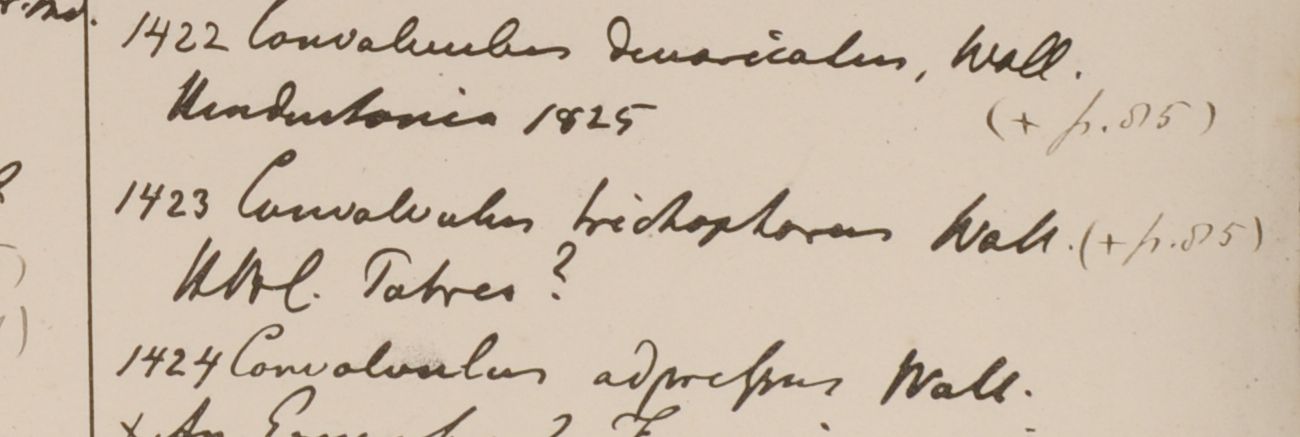 1422 Convolvulus divaricatus, Wall.
Hindustania 1825
(+ p. 85)
1423 Convolvulus trichophorus Wall. (+ p. 85)
HBC. Tavres?
1424 Convolvulus adpressus Wall.